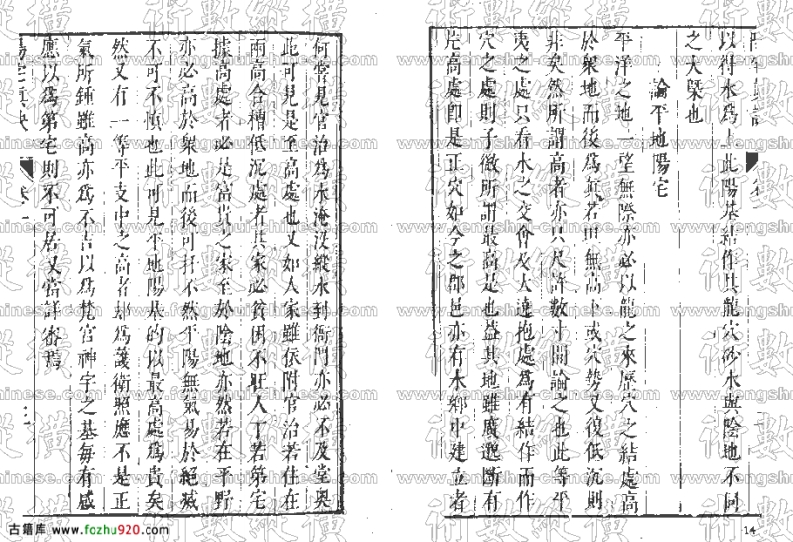 以得水為上此陽基結作其龍穴砂水與陰地不同
之大槩也
論平地陽宅
平洋之地一望無際亦必以龍之來歷穴之結處高
於衆地而後為氣若坦無高下或穴勢又復低沉則
非矣然所謂高者亦只尺許數寸間論之也此等平
夷之處只看水之交會及大遶抱處為有結作而作
穴之處則子微所謂最高是也蓋其地雖廣邈斷有
片高處即是正穴如今之郡邑亦有水鄉中建立者
何嘗見官治為水淹没縱水到衙門亦必不及堂奥
此可見是至高處也又如人家雖依附官治若住在
兩高合槽低沉處者其家必貧困不旺人丁若第宅
據高處者必是富貴之家至於陰地亦然若在平野
亦必高於衆地而後可扦不然平陽無氣易於絕滅
不可不慎也此可見平地陽基的以最高處為貴矣
然又有一等平支中之高者却為護衛照應不是正
氣所鍾雖高亦為不吉以為梵宫神宇之基毎有感
應以為第宅則不可居又當詳審焉
陽宅真訣 卷一
古籍库 www.fozhu920.com
14